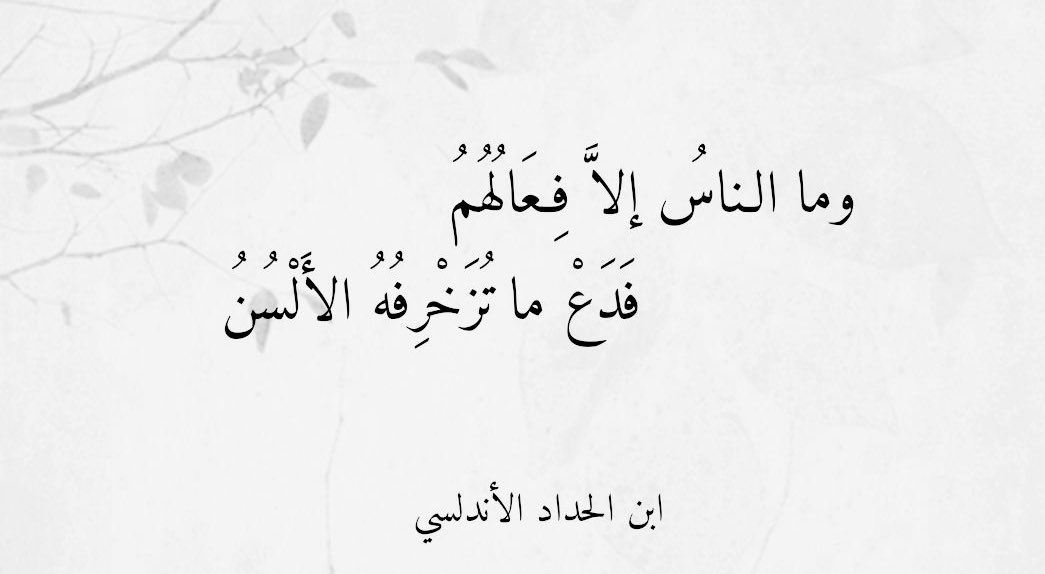 وما الناسُ إلاَّ فِعَالُهُمُ
فَدَعْ ما تُزَخْرِفُهُ الأَلْسُنُ
ابن الحداد الأندلسي